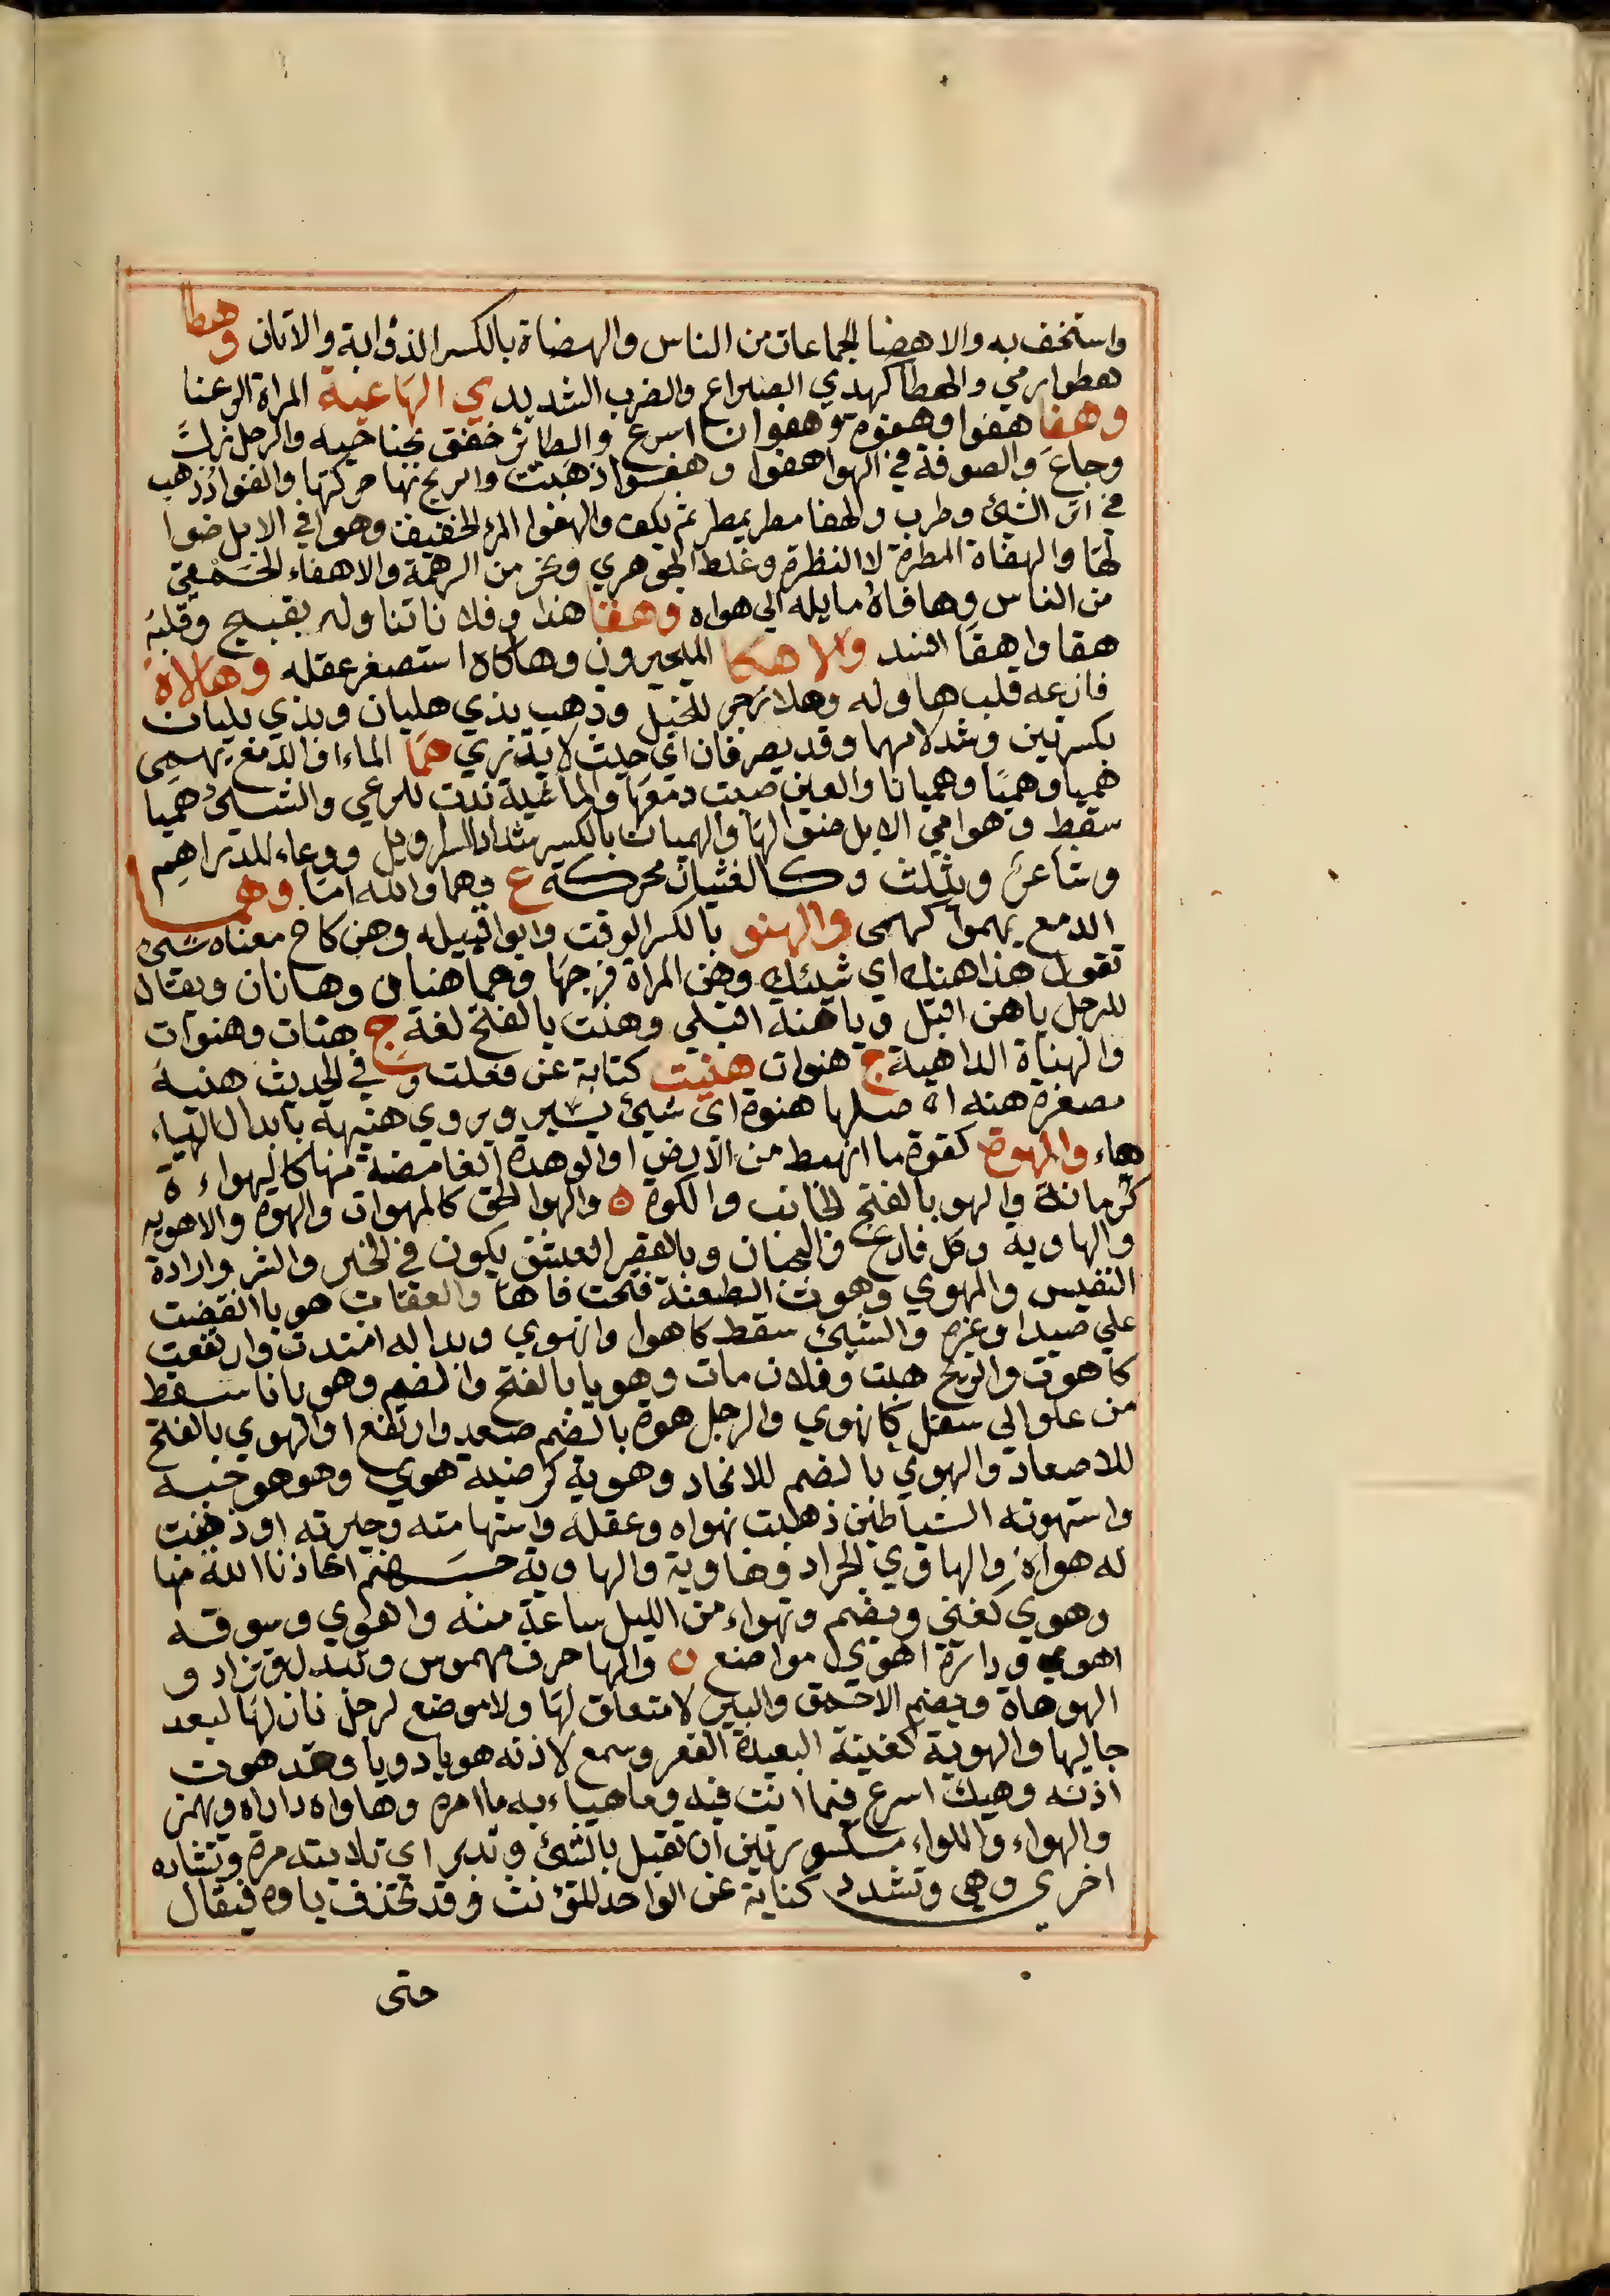 واستخف به والاهضا الجماعات من الناس والهضاة بالكسر الذؤابة والاتان وهطا
هطوا رمي والهطا كهدي الصراع والضرب الشديد ي الهاغية المراة الرعنا
وهفا هفوا وهفوة وهفوانا اسرع والطائر خفق بجناحيه والرجل زل
وجاع والصوفة في الهوا هفوا وهفوا ذهبت والريح بها حركتها والفواد ذهب
في اثر الشئ وطرب والهفا مطر يمطر ثم يكف والهفوا المرء الخفيف وهوافي الابل ضوا
لها والهفاة المطرة لا النظرة وغلط الجوهري ونحو من الرهمة والاهفاء الحمقي
من الناس وهافاه مايله الي هواه وهقا هذا وفلانا تناوله بقبيح وقلبه
هقا واهقا افسد والاهكا المتحيرون وهاكاه استصغر عقله وهالاه
فازعه قلب هاوله وهلا زجر للخيل وذهب بذي هليان وبذي بليان
بكسرتين وشد لامهما وقد يصرفان اي حيث لا يدري هما الماء او الدمع يهمي
هميا وهميا وهميانا والعين صبت دمعها والماشية ندت للرعي والشئ هميا
سقط وهوامي الابل ضوالها والهميان بالكسر شداد السراويل ووعاء للدراهم
وشاعر ويثلث وكالغثيان محركة ع وهما والله اما وهما
الدمع يهموا كهمي والهنو بالكسر الوقت وابوا قبيله وهن كاخ معناه شئ
تقول هذا هنك اي شيئك وهن المراة فرجها وهما هنان وهنانان ويقال
للرجل ياهن اقبل وياهنة اقبلي وهنت بالفتح لغة ج هنات وهنوات
والهناة الداهية ج هنوات هنيت كناية عن فعلت و في الحديث هنية
مصغرة هنه اصلها هنوة اي شئ يسير ويروي هنيهة بابدال الياء
هاء والهوة كقوة ما انهبط من الارض او الوهدة الغامضة منها كالهواءة
كرمانة والهو بالفتح الجانب والكوة ه والهوا الجو كالمهواة والهوة والاهوية
والهاوية وكل فارغ والجبان وبالقصر العشق يكون في الخير والشر وارادة
النفس والمهوي وهوت الطعنة فتحت فاها والعقاب هويا انقضت
علي صيد او غيره والشئ سقط كاهوا وانهوي ويدا له امتدت وارتفعت
كاهوت والريح هبت وفلان مات وهويا بالفتح والضم وهويانا سقط
من علو الي سفل كانهوي والرجل هوة بالضم صعد وارتفع او الهوي بالفتح
للاصعاد والهوي بالضم للانحدار وهويه كرضيه هوي وهو هو حبه
واستهوته الشياطين ذهبت بهواه وعقله واستهامته وحيرته او زينت
له هواه والهاوي الجراد وهاوية والهاوية جهنم اعاذنا الله منها
وهوي كغني ويضم وتهواء من الليل ساعة منه واهوي وسوقه
اهوي ودارة اهوي مواضع ن والها حرف مهموس وتبدل وتزاد و
الهوهاة ويضم الاحمق والبير لا متعلق لها ولا موضع لرجل نازلها لبعد
جاليها والهوية كغنية البعيدة القعر وسمع لاذنه هويا دويا وقد هوت
اذنه وهيك اسرع فيما انت فيه وما هياءبه ما امره وهاواه داراه ويهمز
والهواء واللواء مكسورتين ان تقبل بالشئ وتدبر اي تلاينه مرة وتشاده
اخري وهي وتشدد كناية عن الواحد للمؤنث وقد تحذف ياوه فيقال
حتى